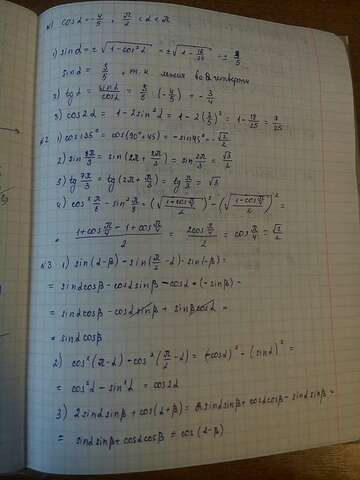 №1 cosα = -4/5, π/2 < α < π
1) sinα = ±√(1-cos²α) = ±√(1-16/25) = ±3/5
sinα = 3/5, т.к. лежит во 2 четверти
2) tgα = sinα/cosα = 3/5 : (-4/5) = -3/4
3) cos2α = 1-2sin²α = 1-2(3/5)² = 1-18/25 = 7/25
№2 1) cos135° = cos(90°+45) = -sin45° = -√2/2
2) sin 8π/3 = sin(2π + 2π/3) = sin 2π/3 = √3/2
3) tg 7π/3 = tg(2π + π/3) = tg π/3 = √3
4) cos² π/8 - sin² π/8 = (√((1+cos π/4)/2))² - (√((1-cos π/4)/2))² =
= (1+cos π/4 - 1+cos π/4)/2 = 2cos π/4 /2 = cos π/4 = √2/2
№3 1) sin(α-β) - sin(π/2 - α)·sin(-β) =
= sinαcosβ - cosαsinβ - cosα·(-sinβ) =
= sinαcosβ - cosαsinβ + sinβcosα =
= sinαcosβ
2) cos²(π-α) - cos²(π/2 - α) = (-cosα)² - (sinα)² =
= cos²α - sin²α = cos2α
3) 2sinαsinβ + cos(α+β) = 2sinαsinβ + cosαcosβ - sinαsinβ =
= sinαsinβ + cosαcosβ = cos(α-β)